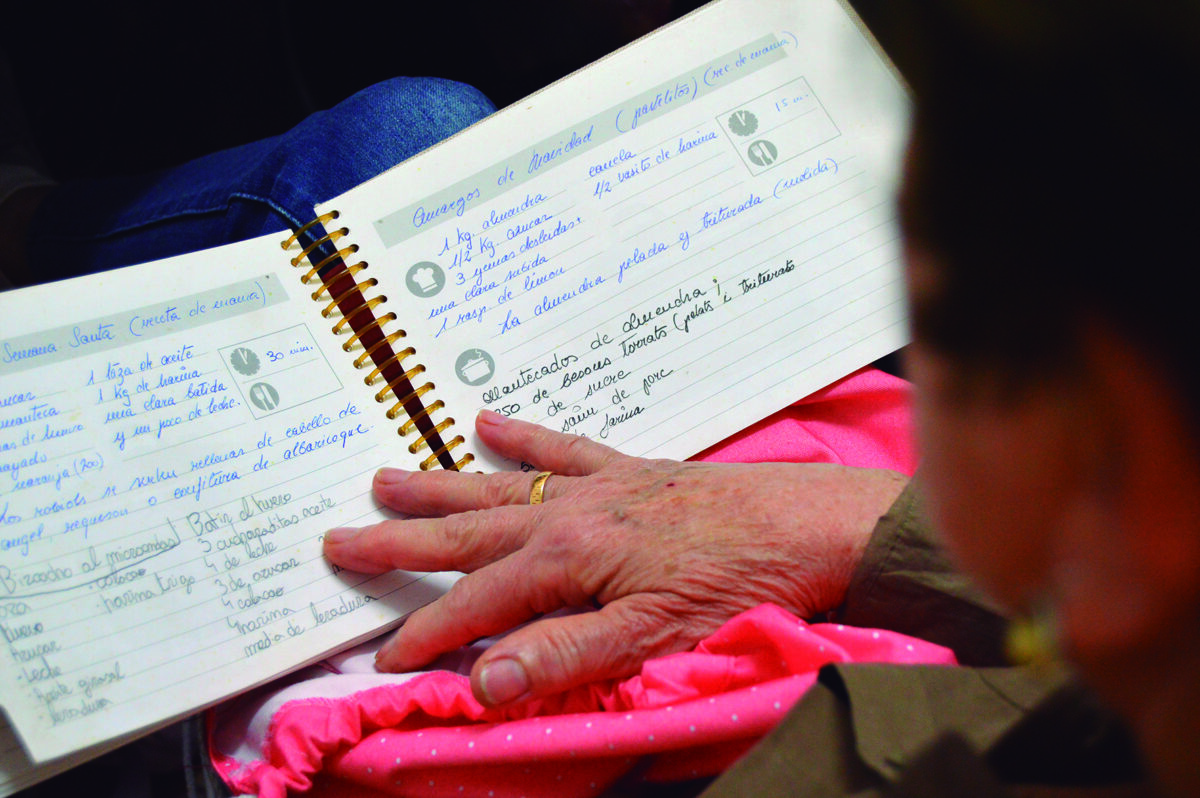 Semana Santa (receta de mamá)
1 taza de aceite
1 kg de harina
una clara batida
y un poco de leche.
30 min.
manteca
naranja (200)
Los robiols se suelen rellenar de cabello de
angel, requeson o confitura de albaricoque.
Bizcocho al microondas
Batir el huevo
3 cucharaditas aceite
4 de leche
3 de azucar
4 colacao
harina
media de levadura
colacao
harina trigo
huevo
Azucar
leche
Aceite girasol
levadura
Amargos de Navidad (pastelitos) (rec de mamá)
1 kg. almendra
1/2 kg. azucar
3 yemas desleidas.
una clara subida
1 rasp. de limon
canela
1/2 vasito de harina
15 m.
La almendra pelada y triturada (molida)
Mantecados de almendra i
250 de bessons torrats (pelats i triturats
de sucre
saïm de porc
de farina